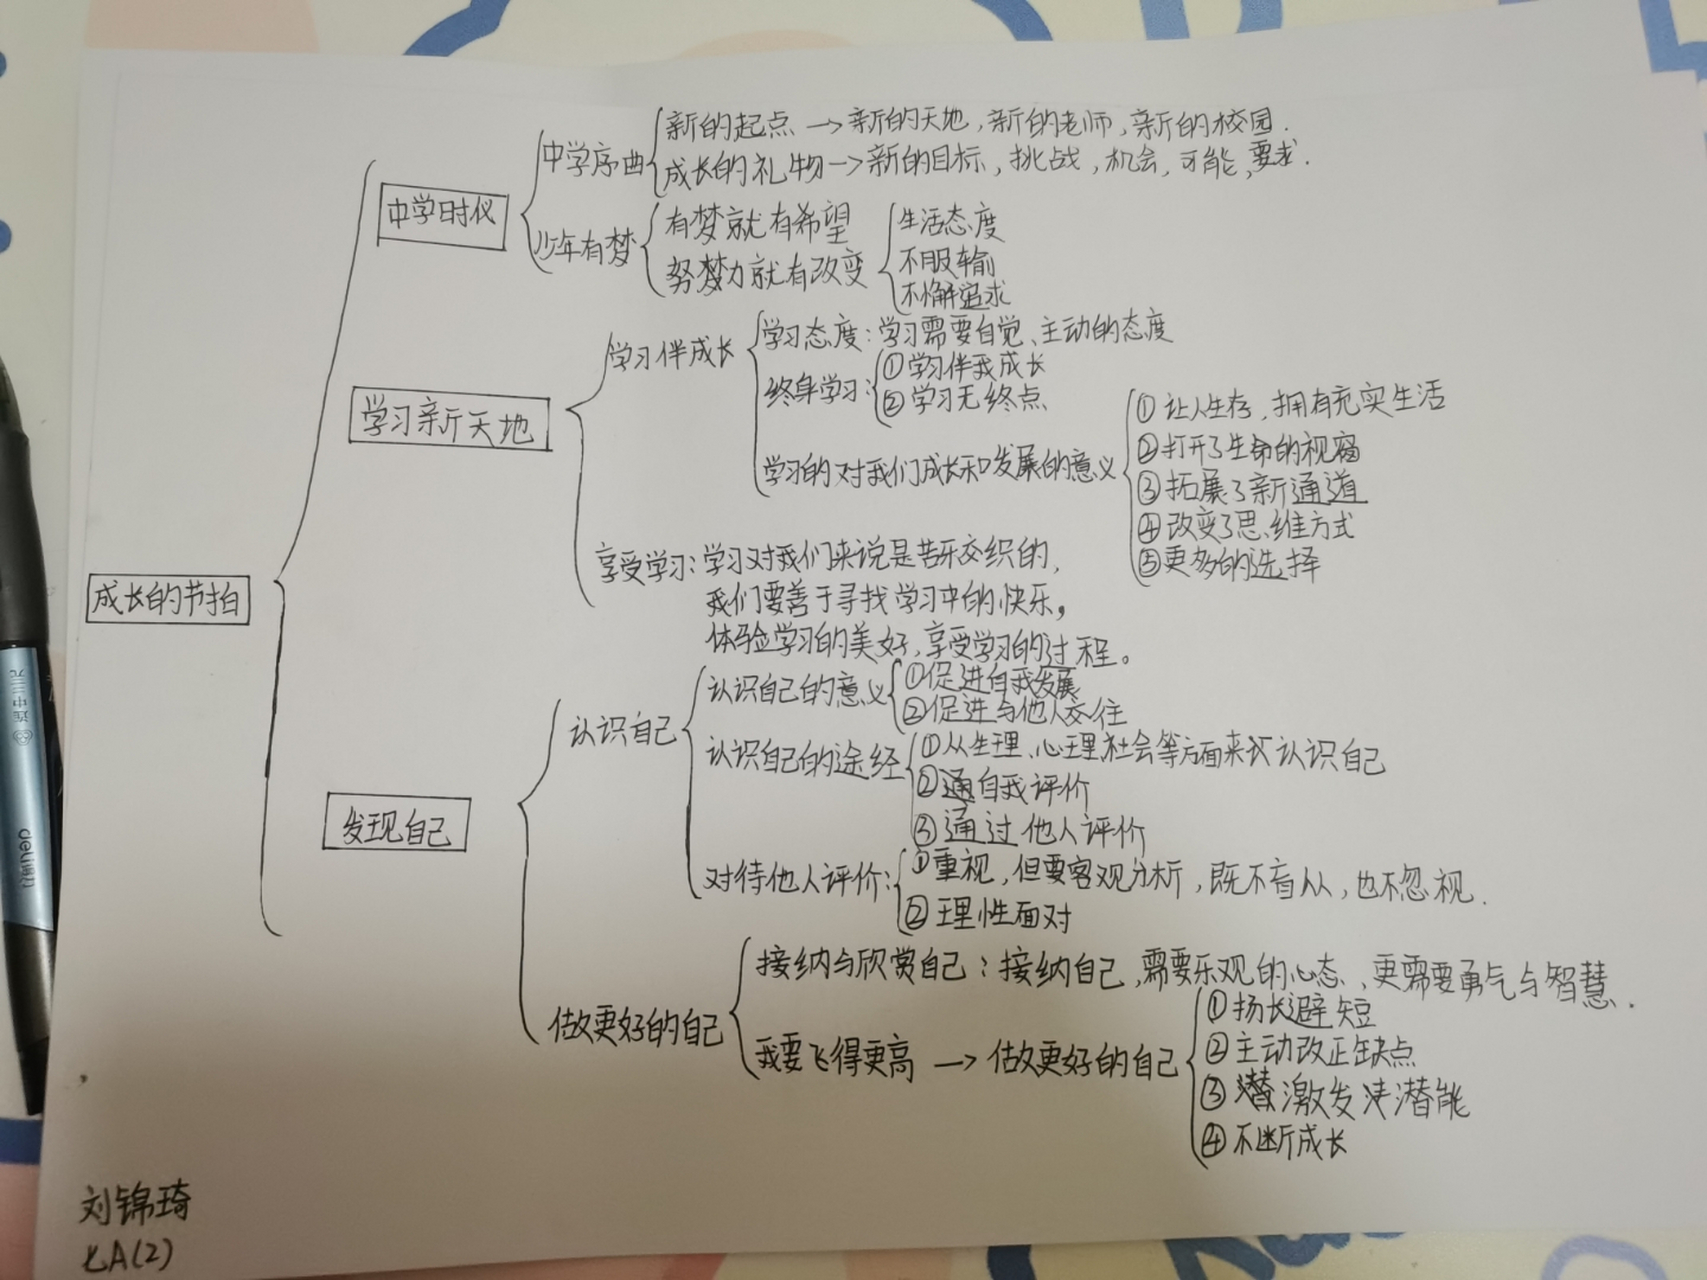 成长的节拍
中学时代
中学序曲
新的起点→新的天地,新的老师,新的校园.
成长的礼物→新的目标,挑战,机会,可能,要求.
少年有梦
有梦就有希望
努力就有改变
生活态度
不服输
不懈追求
学习新天地
学习伴成长
学习态度:学习需要自觉、主动的态度
终身学习:
①学习伴我成长
②学习无终点
学习的对我们成长和发展的意义
①让人生存,拥有充实生活
②打开了生命的视窗
③拓展了新通道
④改变了思维方式
⑤更多的选择
享受学习:学习对我们来说是苦乐交织的,
我们要善于寻找学习中的快乐,
体验学习的美好,享受学习的过程。
发现自己
认识自己
认识自己的意义
①促进自我发展
②促进与他人交往
认识自己的途经
①从生理、心理、社会等方面来认识自己
②通自我评价
③通过他人评价
对待他人评价:
①重视,但要客观分析,既不盲从,也不忽视.
②理性面对
做更好的自己
接纳与欣赏自己:接纳自己,需要乐观的心态、更需要勇气与智慧.
我要飞得更高→做更好的自己
①扬长避短
②主动改正缺点
③激发潜能
④不断成长
刘锦琦
七A(2)
deli得力
连中三元